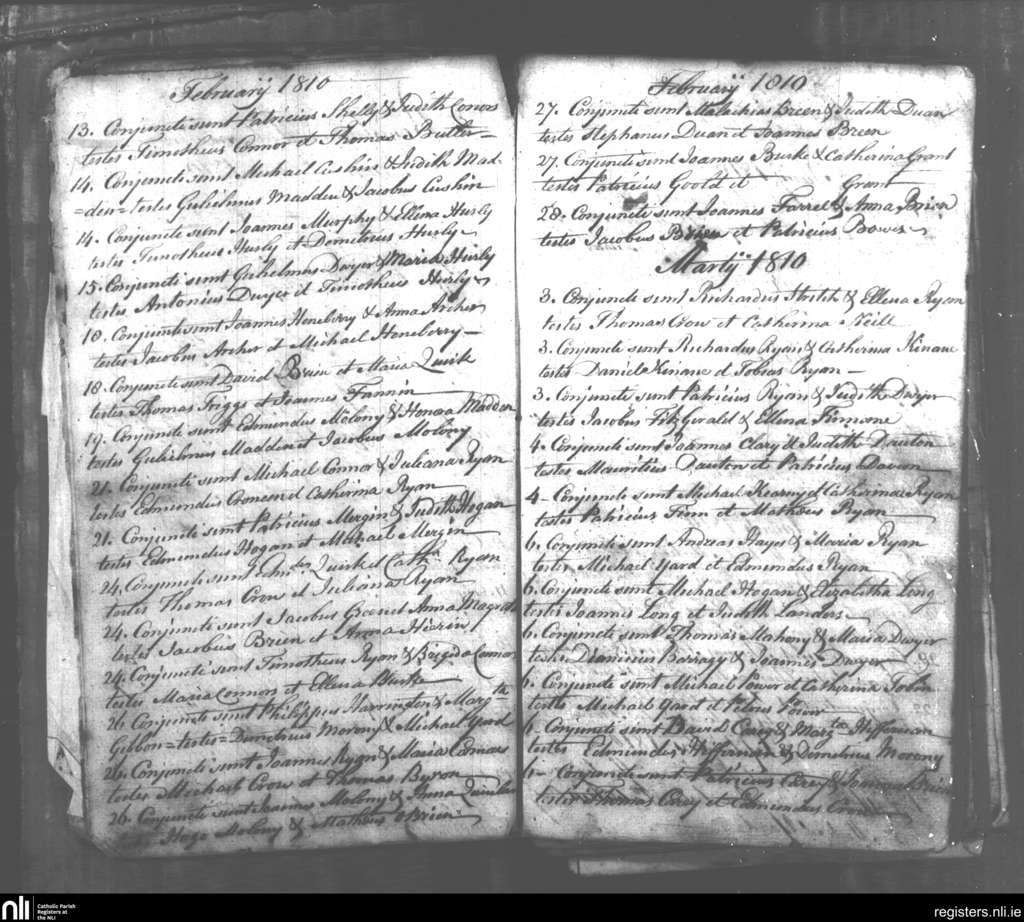 Februarÿ 1810
13. Conjuncti sunt Patricius Shelly & Judith Connors
testes Timotheus Connor et Thomas Butler
14. Conjuncti sunt Michael Cushin & Judith Mad
=den= testes Gulielmus Madden & Jacobus Cushin
14. Conjuncti sunt Joannes Murphy & Ellena Hurly
testes Timotheus Hurly et Demetrius Hurly
15. Conjuncti sunt Gulielmus Dwyer & Maria Hurly
testes Antonius Dwyer et Timotheus Hurly
18. Conjuncti sunt Joannes Heneberry & Anna Archer
testes Jacobus Archer et Michael Heneberry
18. Conjuncti sunt David Brien et Maria Quirk
testes Thomas Griggs et Joannes Fannin
19. Conjuncti sunt Edmundus Molony & Honora Madden
testes Gulielmus Madden et Jacobus Molony
21. Conjuncti sunt Michael Connor & Juliana Ryan
testes Edmundus Cronen et Catherina Ryan
21. Conjuncti sunt Patricius Mergin & Judith Hogan
testes Edmundus Hogan et Michael Mergin
24. Conjuncti sunt Quirk et Ryan
testes Thomas Crow et Juliana Ryan
24. Conjuncti sunt Jacobus et Anna Magrath
testes Jacobus Brien et Anna
24. Conjuncti sunt Timotheus Ryan & Brigida Connor
testes Maria Connors et Ellena Burke
26 Conjuncti sunt Philippus Harrington & Marg.ta
Gibbon = testes = Demetrius Morony & Michael Yard
26. Conjuncti sunt Joannes Ryan & Maria Connors
testes Michael Crow et Thomas Byron
26. Conjuncti sunt Joannes Molony & Anna Quinlan
Hugo Molony & Matheus OBrien
Februarÿ 1810
27. Conjuncti sunt Malachias Breen & Judith Duan
testes Stephanus Duan et Joannes Breen
27. Conjuncti sunt Joannes Burke & Catherina Grant
testes Patricius Goold et Grant
28. Conjuncti sunt Joannes Farrel & Anna Brien
testes Jacobus Brien et Patricius Bowes
Martÿ 1810
3. Conjuncti sunt Richardus Stretch & Ellena Ryan
testes Thomas Crow et Catherina Neill
3. Conjuncti sunt Richardus Ryan & Catherina Kinane
testes Daniel Kinane et Tobias Ryan
3. Conjuncti sunt Patricius Ryan & Judith Dwyer
testes Jacobus FitzGerald & Ellena Finnane
4. Conjuncti sunt Joannes Clary & Judith Dauton
testes Mauritius Dauton et Patricius
4. Conjuncti sunt Michael Kearny et Catherina Ryan
testes Patricius et Matheus Ryan
6. Conjuncti sunt Andreas Hayes & Maria Ryan
testes Michael Yard et Edmundus Ryan
6. Conjuncti sunt Michael Hogan & Elizabitha Long
testes Joannes Long et Judith Landers
6. Conjuncti sunt Thomas Mahony & Maria Dwyer
testes Dionisius Barragy & Joannes Dwyer
6. Conjuncti sunt Michael Power et Catherina Tobin
testes Michael Yard et Petrus Power
6. Conjuncti sunt David Carey & Marg.ta Heffernan
testes Edmundus Heffernan & Demetrius Morony
6. Conjuncti sunt Patricius Carey & Brien
testes Thomas Carey et Edmundus
nli
Catholic Parish
Registers at
the NLI
registers.nli.ie